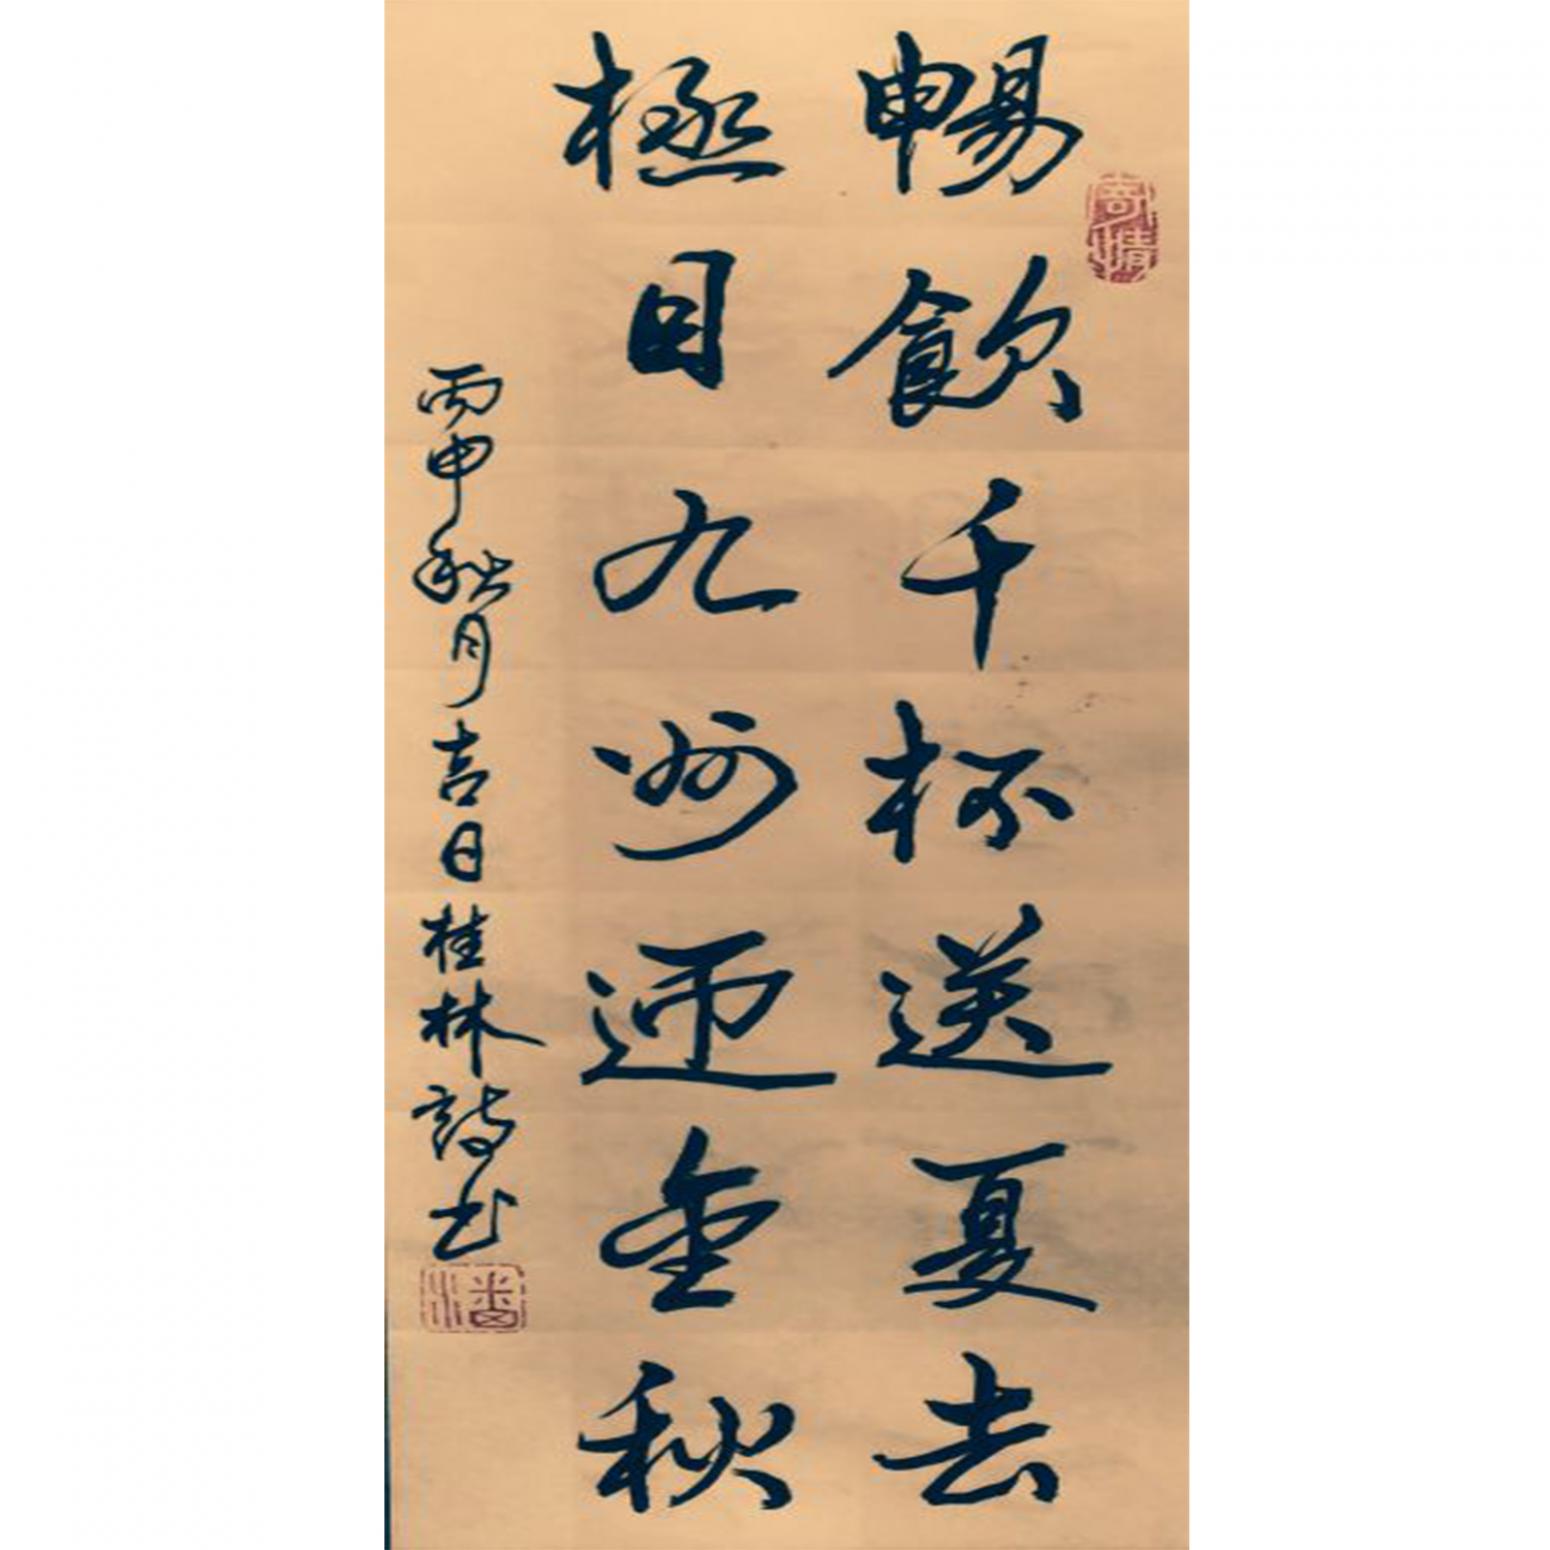 暢飲千杯送夏去
極目九州迎金秋
丙申秋月吉日桂林詩书